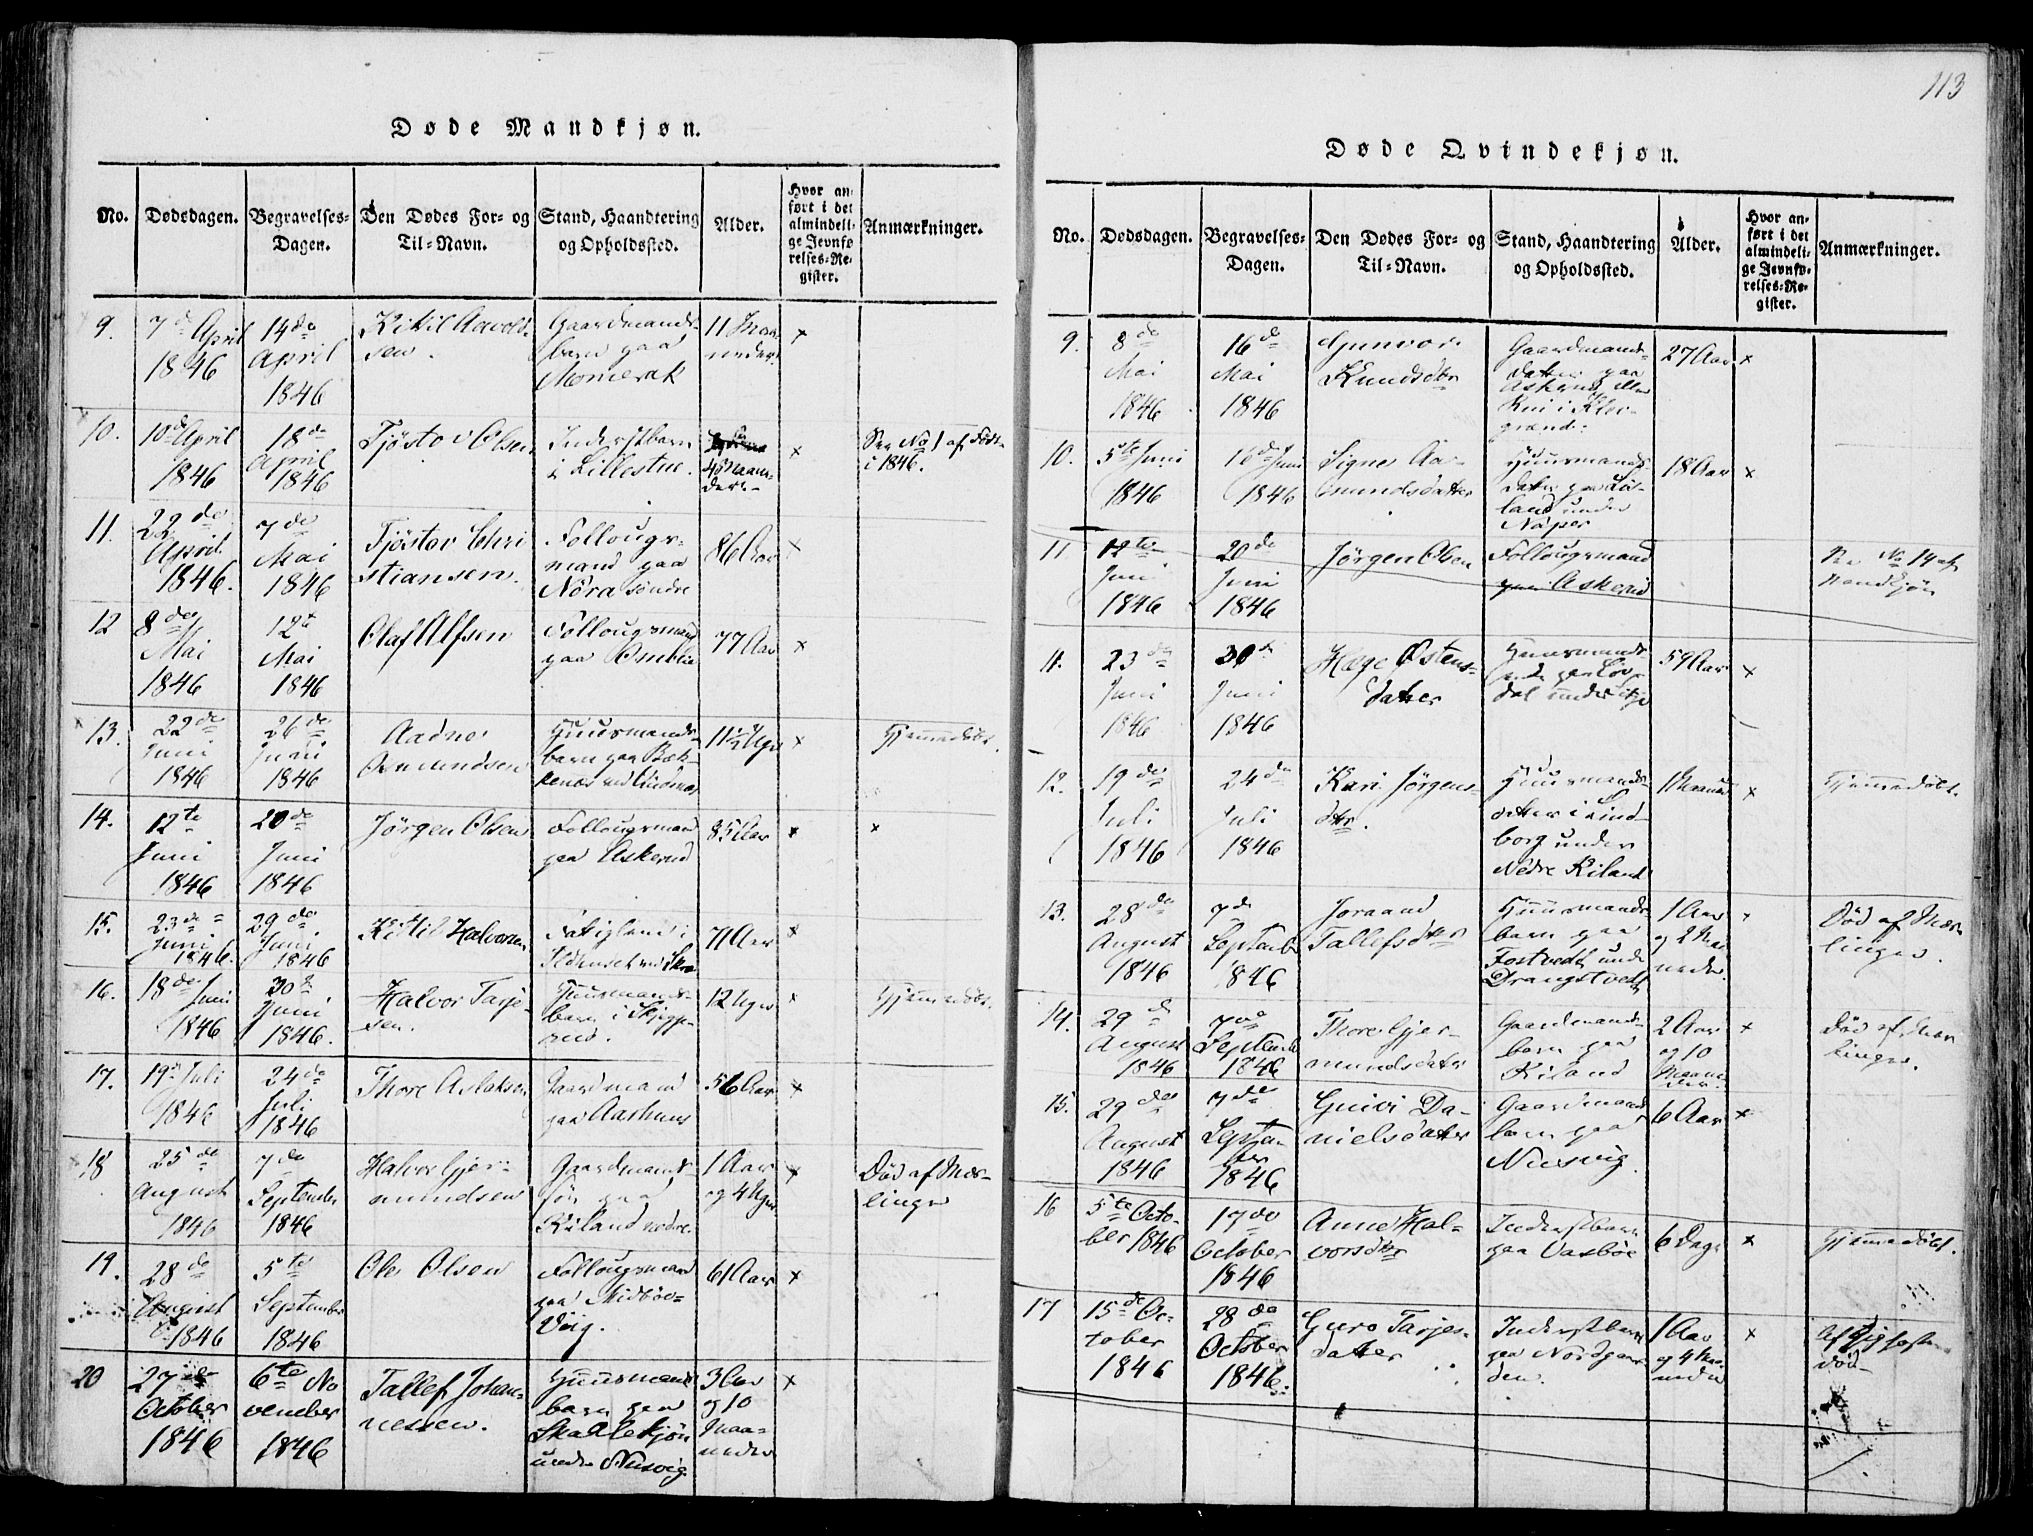 113
Døde Mandkjøn.
No.
Dødsdagen.
Begravelses-
Dagen.
Den Dødes For- og
Til-Navn.
Stand, Haandtering
og Opholdssted.
Alder.
Hvor an-
ført i det
almindeli-
ge Jevnfø-
relses-Re-
gister.
Anmærkninger.
9.
7de April
1846
14de
April
1846
Kittil Aavolds-
sen.
Gaardmands-
barn paa
Momerak
11 Maa-
neder
×
10.
10de April
1846
18de
April
1846
Tjøstov Olsen
Inderstbarn
i Lillestue.
4 Maane-
der
×
See No 1 af Født
i 1846.
11.
22de
April
1846.
7de
Mai
1846
Tjøstov Chri
stiansen.
Follougs-
mand paa
Nóra søndre
86 Aar
×
12
8de
Mai
1846
12te
Mai
1846
Olaf Alfsen
Follougsmand
paa Omblie
77 Aar
×
13.
22de
Juni
1846
26de
Juni
1846
Aadne
Osmundsen
Huusmands-
barn paa Bæk-
kenæs
11½ Uge
×
Hjemmedøbt.
14.
12te
Juni
1846
20de
Juni
1846
Jörgen Olsen
Follougsmand
paa Askerud
85 Aar
×
×
15.
23de
Juni
1846.
29de
Juni
1846
Kittil Halvorsen
Fatiglem i
71 Aar
×
16.
18de Juni
1846
30te
Juni
1846.
Halvor Tarje-
sen.
Huusmands-
barn i Skjegge-
rud.
12 Uger
×
Hjemmedøbt.
17.
19de Juli
1846
24de
Juli
1846
Thore Aslaksen
Gaardmand
paa Aashuus
56 Aar
×
18
25de
August
1846
7de
September
1846
Halvor Gjer-
mundsen
Gaardmands-
søn paa
Kiland nedre.
1 Aar
og 4 Uger
×
Død af Mæs-
linger
19.
28de
August
1846
5te
September
1846
Ole Olsen
Follougsmand
paa Midbøe-
Vig.
61 Aar
×
20
27de
October
1846
6te No
vember
1846
Tallef Johan-
nessen.
Huusmands
barn paa
Skallekjøn
under Næsvig
3 Aar
og 10
Maa-
neder
×
Døde Qvindekjøn.
No.
Dødsdagen.
Begravelses-
Dagen.
Den Dødes For- og
Til-Navn.
Stand, Haandtering
og Opholdssted.
Alder.
Hvor an-
ført i det
almindeli-
ge Jevnfø-
relses-Re-
gister.
Anmærkninger.
9.
8de
Mai
1846
16de
Mai
1846
Gunvor
Knudsdtr
Gaardmands-
datter paa
Askerud eller
27 Aar
×
10.
5te Juni
1846
16de Juni
1846
Signe Aa-
mundsdatter
Huusmands-
datter paa
land under
Näper
18 Aar
×
11
12te
Juni
1846
20de
Juni
1846
Jørgen Olsen
Follougsmand
paa Askerud
See No 14 af
Mandkjøn
11.
23de
Juni
1846
30te
Juni
1846
Hæge Østens-
datter
Huusmands
59 Aar
×
12.
19de
Juli
1846
24de
Juli
1846
Kari Jørgens-
dtr.
Huusmands-
datter i Lind-
borg under
Nedre Kiland
1 Maaned
×
Hjemmedøbt.
13.
28de
August
1846
7de
Septembr
1846
Joraand
Tallefsdtr
Huusmands-
barn paa
Fostvedt under
Drangstvedt
1 Aar
og 2 Maa
neder.
×
Død af Mæs-
linger.
14.
29de
August
1846
7de
Septembr
1846
Thore Gjer-
mundsdatter
Gaardmands-
barn paa
Kiland
2 Aar
og 10
Maane-
der.
×
Død af Mæs
linger.
15.
29de
August
1846
7de
Septem
ber
1846
Guivi Da-
nielsdatter
Gaardmands
barn paa
Næsvig.
6 Aar
×
16
5te Octo-
ber 1846
17de
October
1846
Anne Hal-
vorsdtr
Inderstbarn
paa Vasbøe
6 Dage
×
Hjemmedøbt.
17
15de Oc-
tober
1846
28de
October
1846.
Guro Tarjes-
datter
Inderstbarn
paa Nordgaar-
den.
1 Aar
og 4 Maa-
neder
×
død